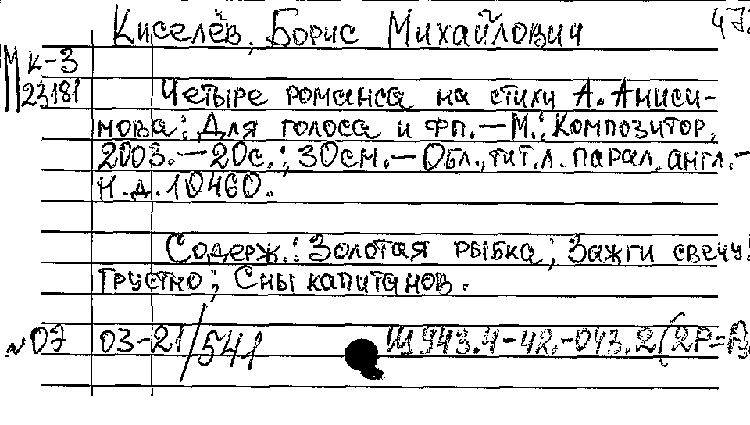 Киселёв, Борис Михайлович
М к-3
23181
Четыре романса на стихи А. Аниси-
мова: Для голоса и фп. — М.: Композитор,
2003. — 20с.; 30см. — Обл., тит. л. парал. англ. —
Н.д. 10460.
Содерж.: Золотая рыбка; Зажги свечу!
Грустно; Сны капитанов.
№ 07 03-21/541 Щ943.4-42.-043.2(2Р=